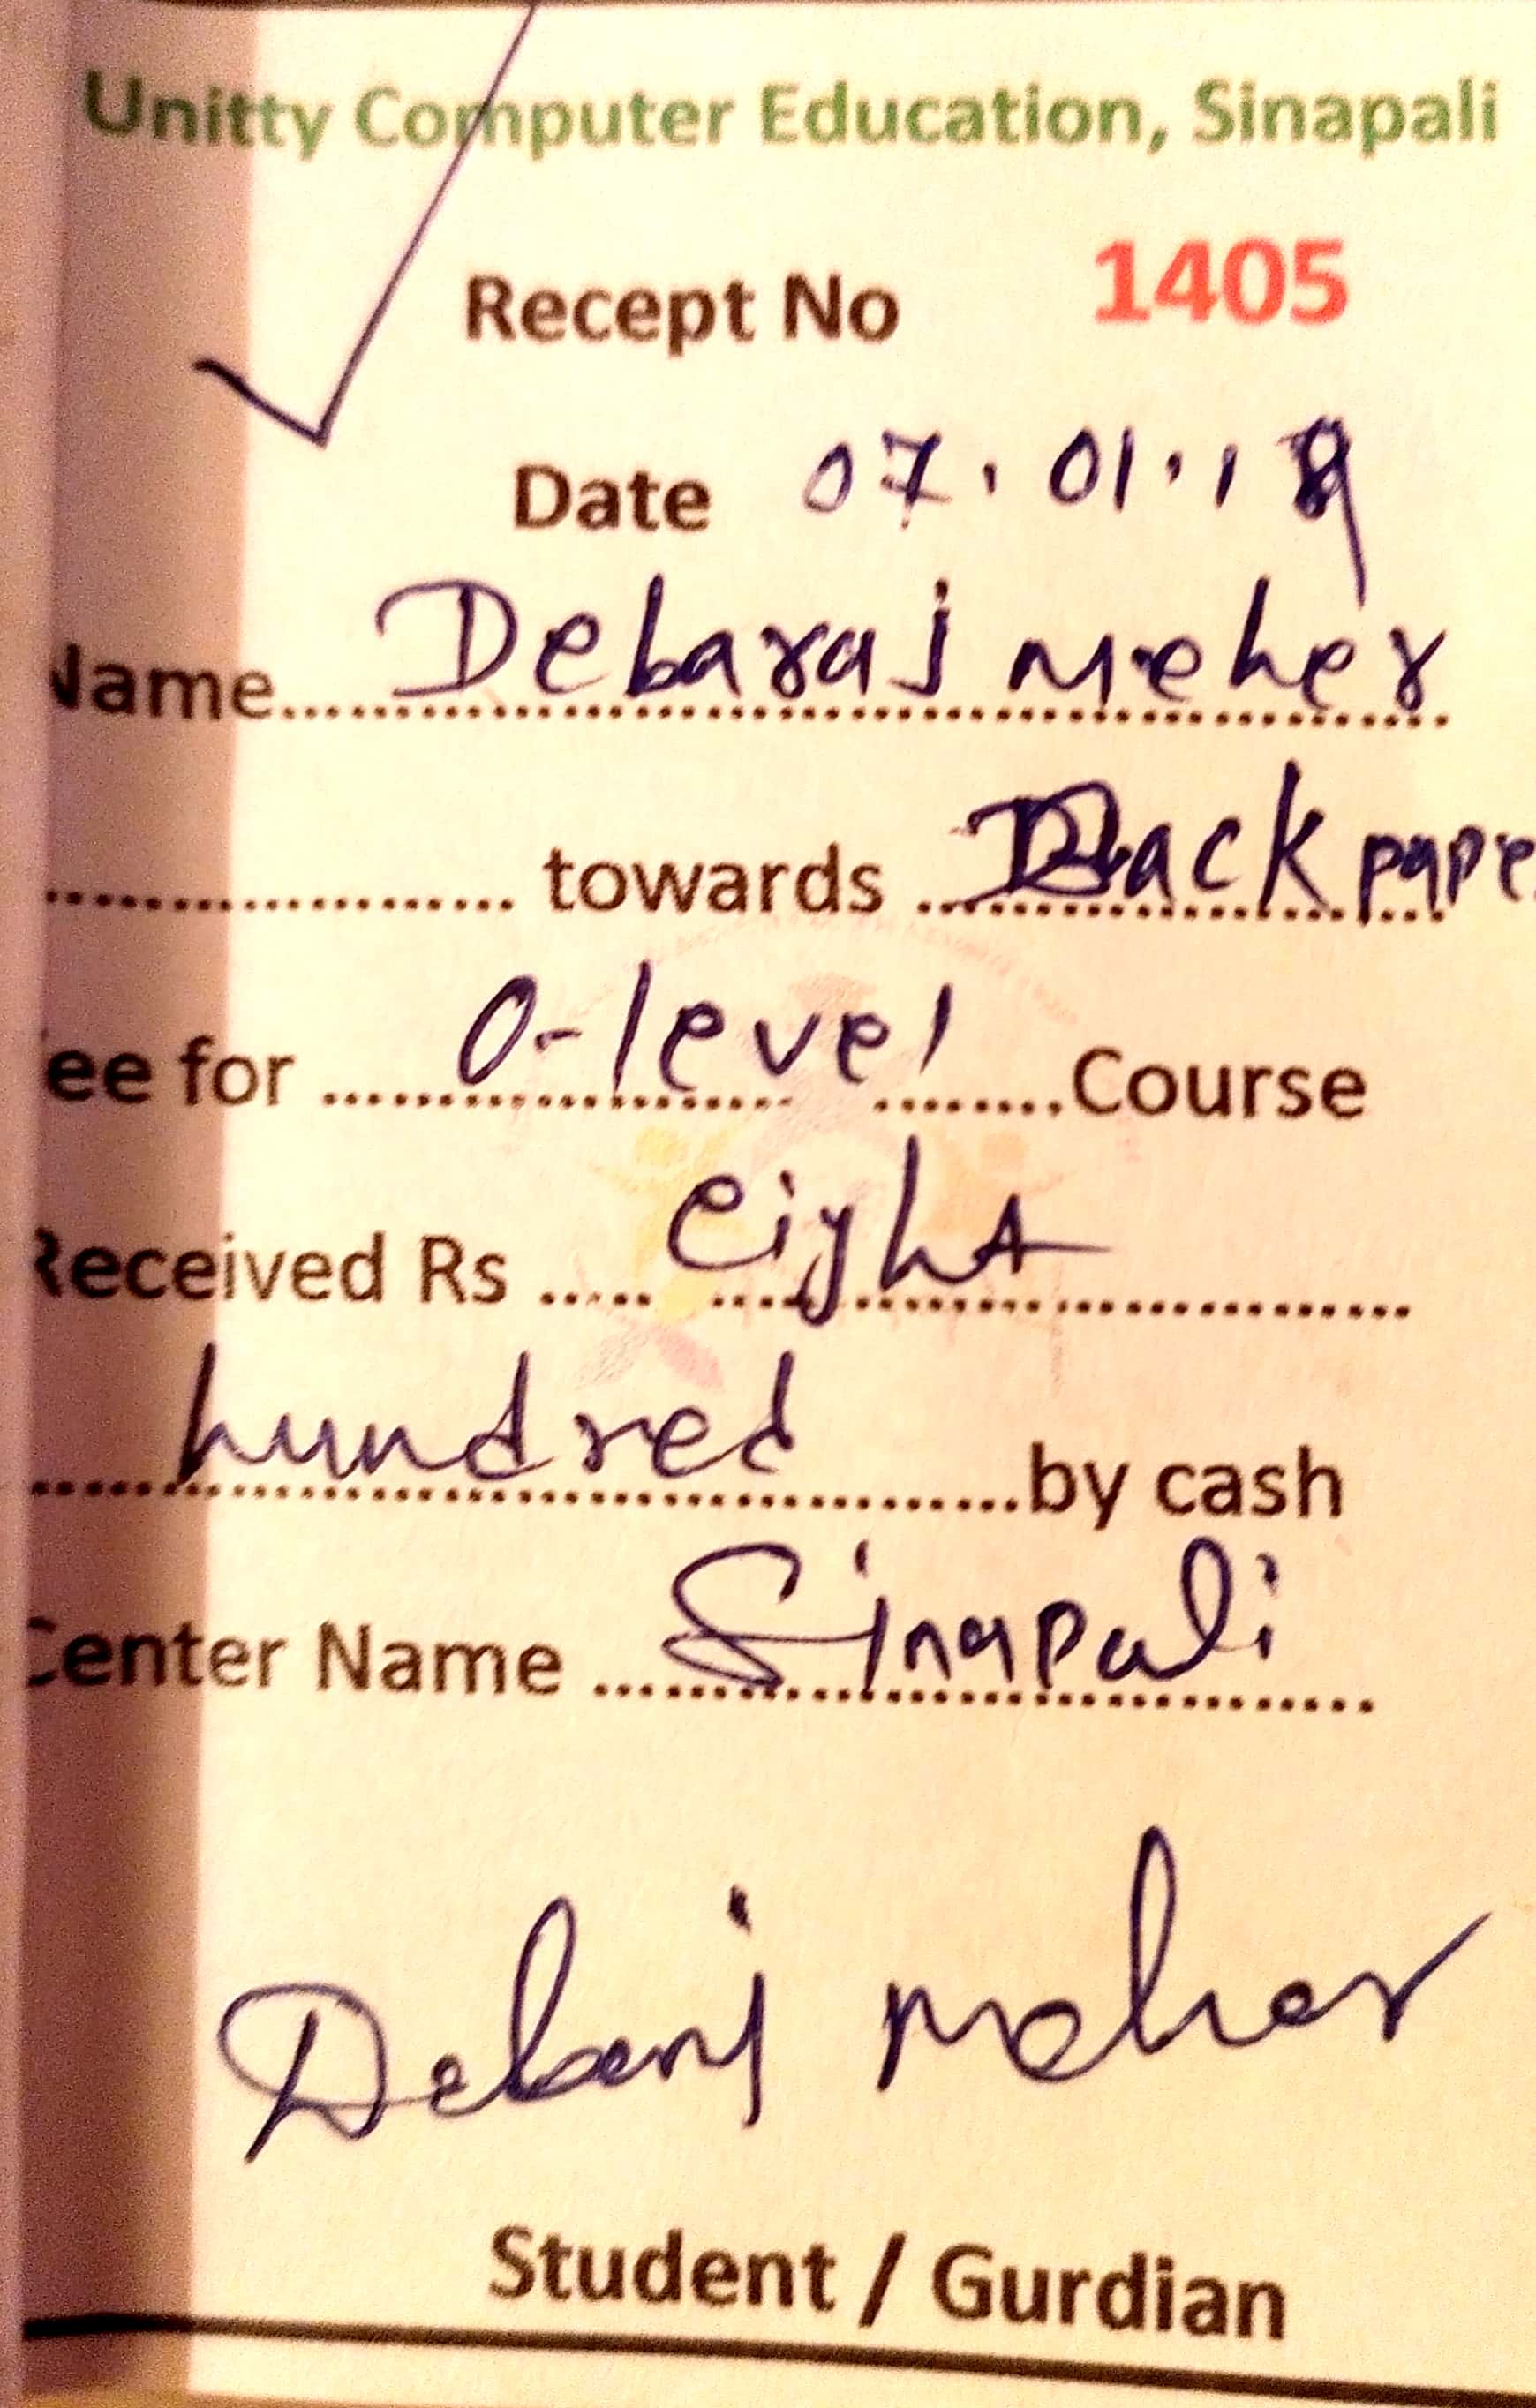 Unitty Computer Education, Sinapali
Recept No 1405
Date 07.01.19
Name................ Debaraj meher
.................... towards ........ Back pape
ee for ........ O-level ........Course
Received Rs ..... eight ................
........ hundred ................by cash
Center Name ........ Sinapali
Debaraj meher
Student / Gurdian